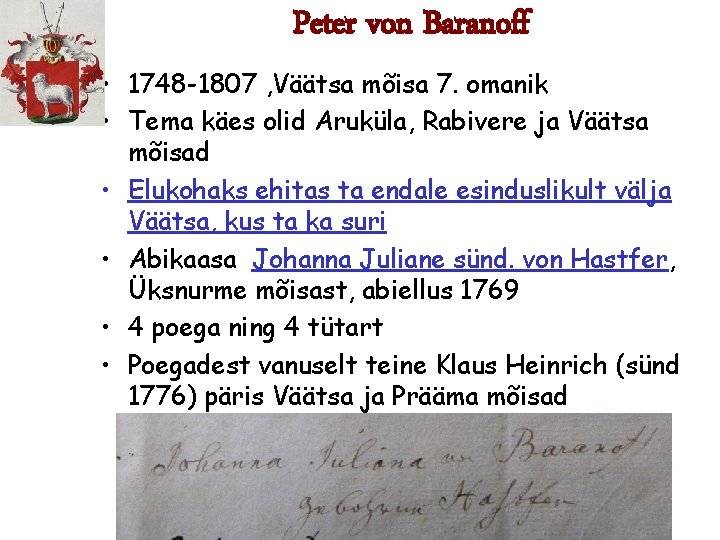 Peter von Baranoff
• 1748 -1807 ,Väätsa mõisa 7. omanik
• Tema käes olid Aruküla, Rabivere ja Väätsa
mõisad
• Elukohaks ehitas ta endale esinduslikult välja
Väätsa, kus ta ka suri
• Abikaasa Johanna Juliane sünd. von Hastfer,
Üksnurme mõisast, abiellus 1769
• 4 poega ning 4 tütart
• Poegadest vanuselt teine Klaus Heinrich (sünd
1776) päris Väätsa ja Prääma mõisad
Johanna Juliana von Baranoff
gebohrne Hastfer